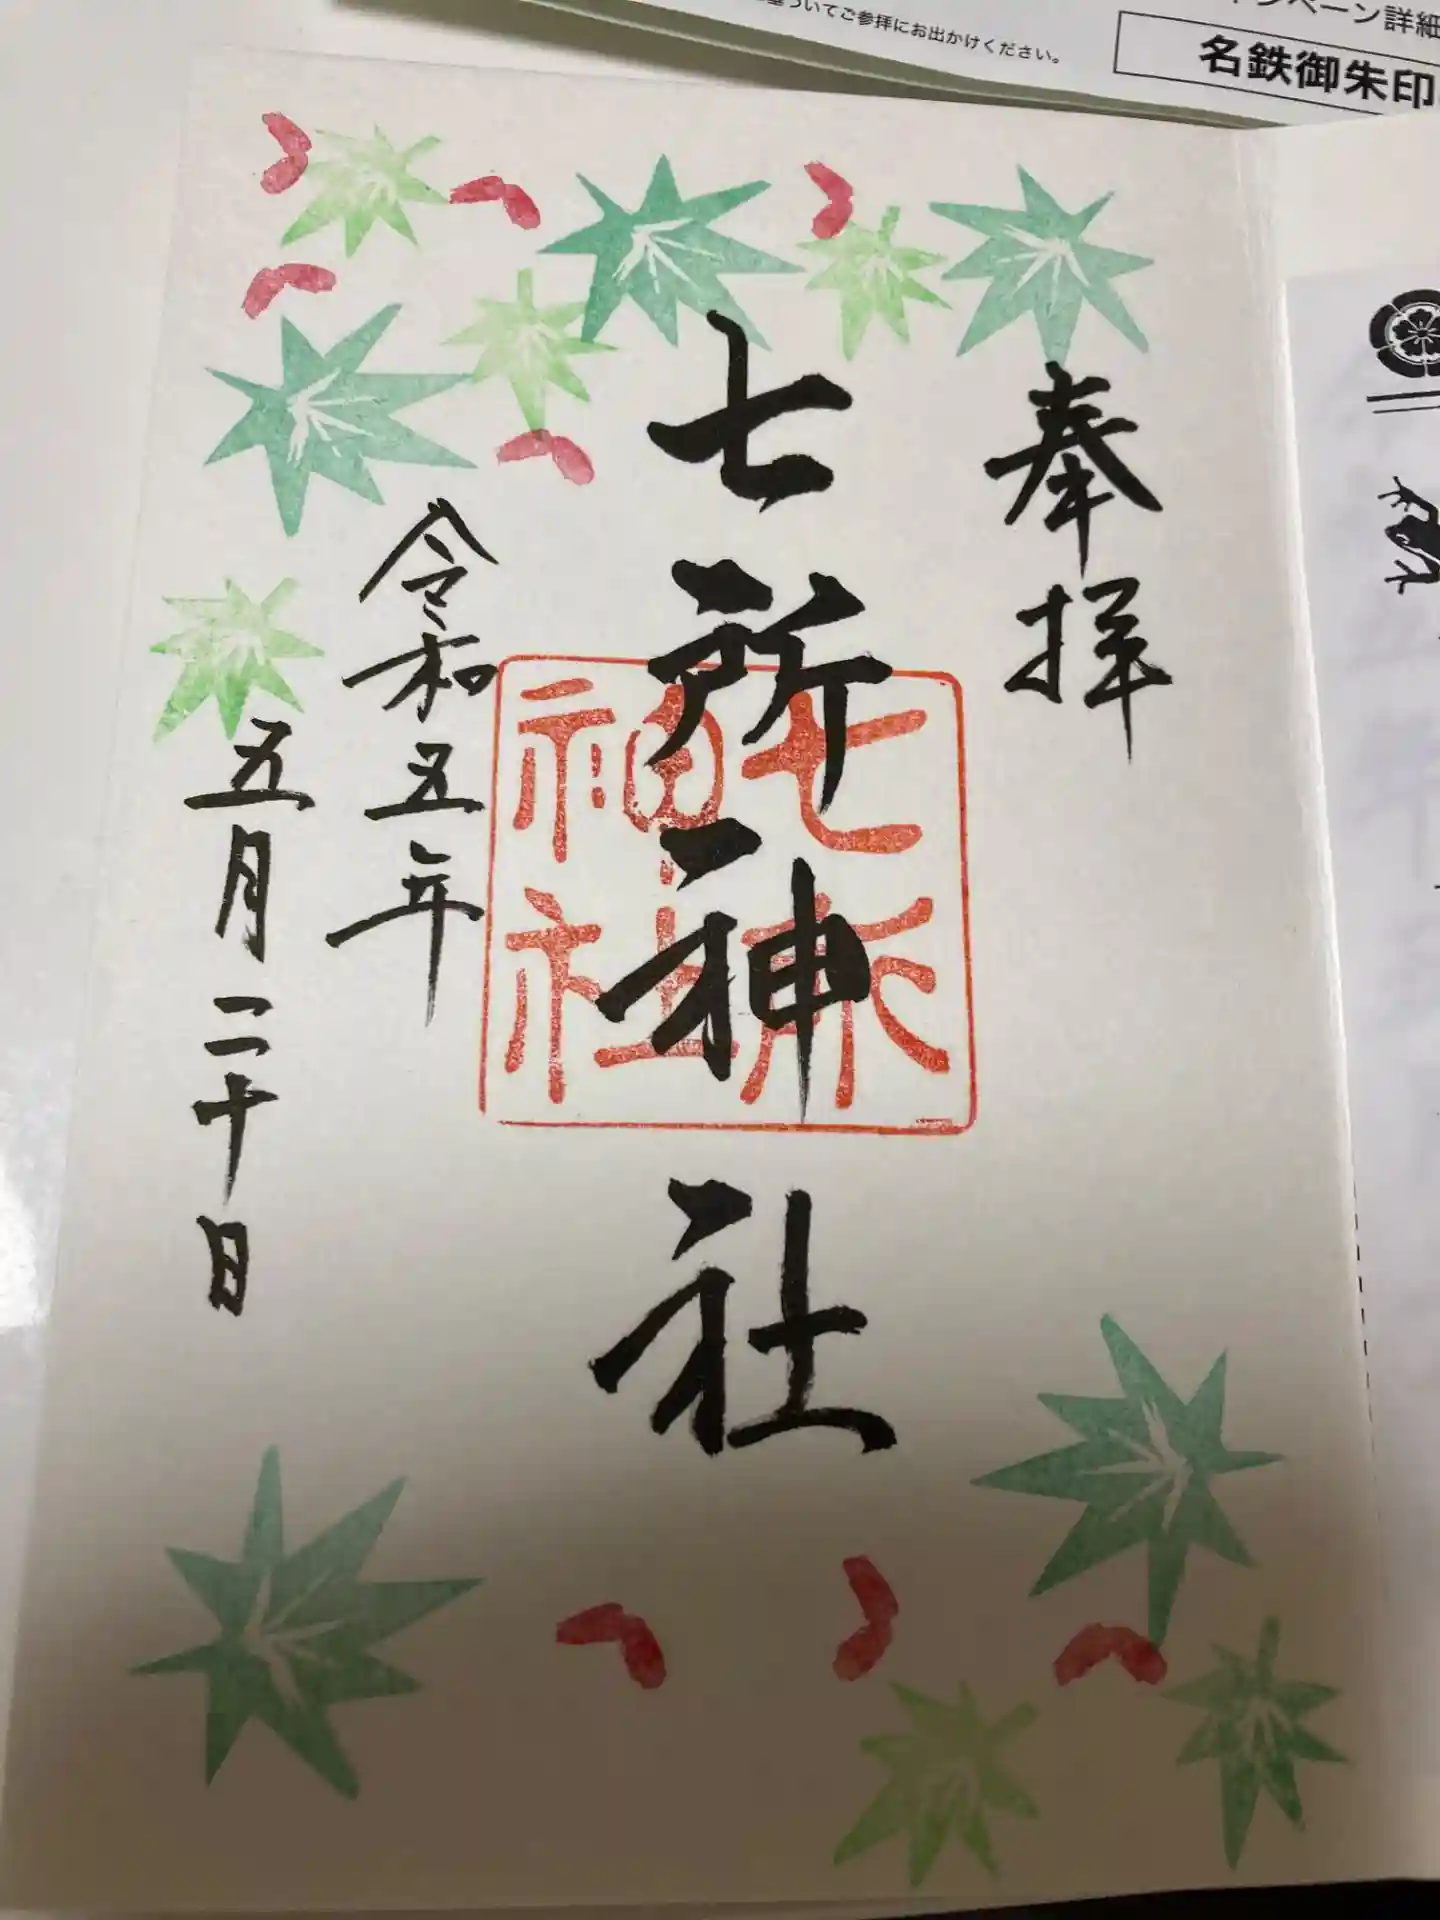 基づいてご参拝にお出かけください。
ンペーン詳細
名鉄御朱印
奉拝
七所神社
七所
神社
令和五年
五月二十日